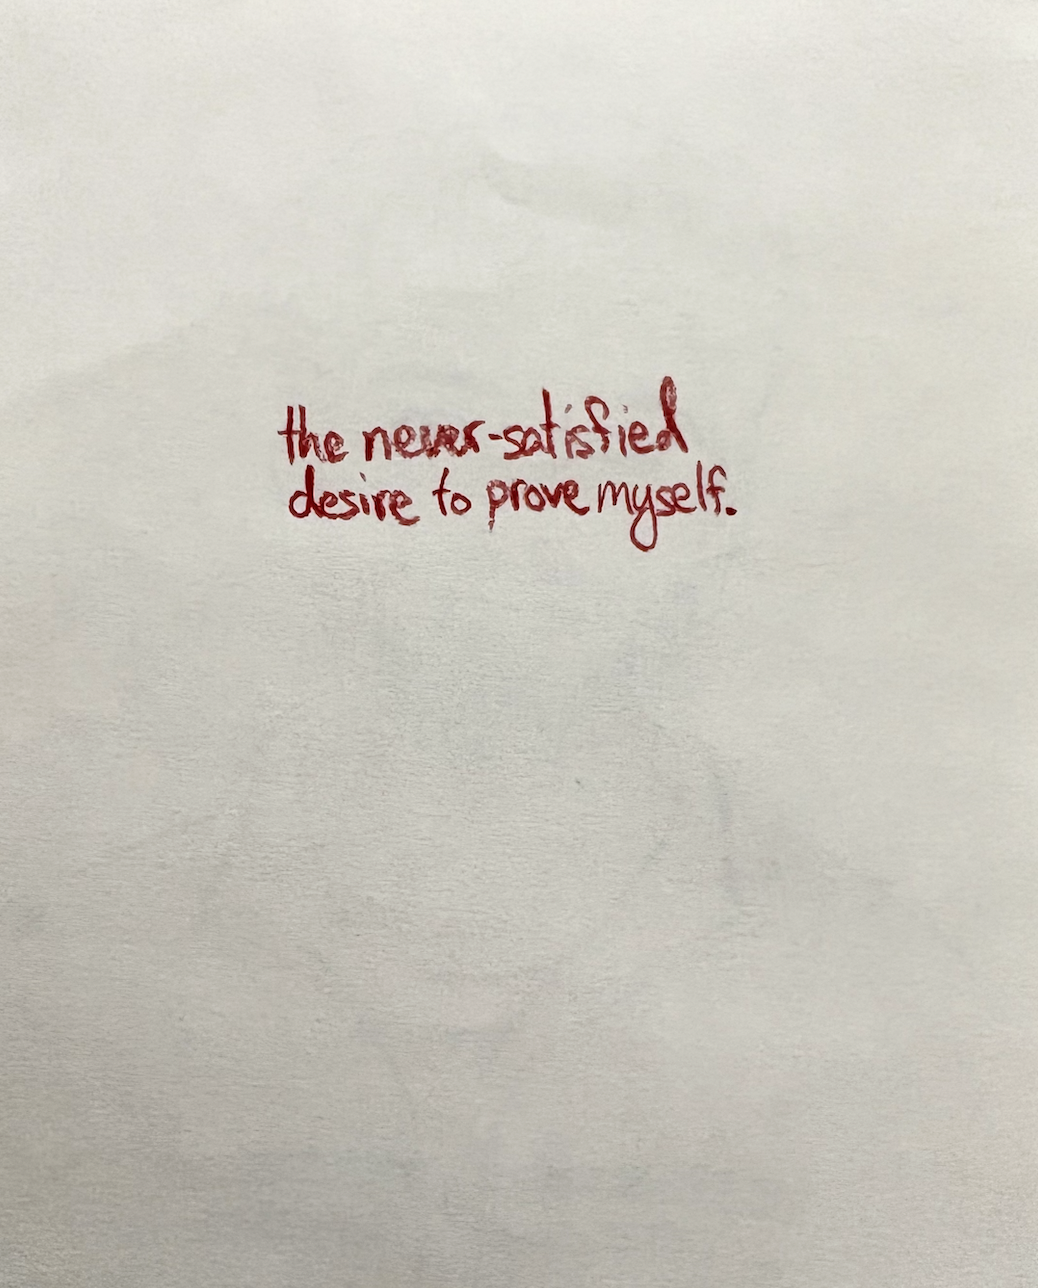 the never-satisfied
desire to prove myself.